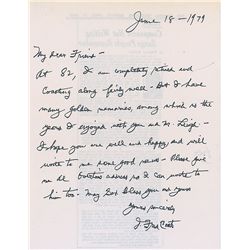 June 18 - 1979
My dear Friend
At 82, I am completely retired and
Coasting along fairly well - But I have
many golden memories, among which is the
years I enjoyed with you and M. Leigh -
I hope you are well and happy and will
write to me some good news - Please give
me de Corti's address so I can write to
him too - May God bless you and yours
Yours sincerely
J Fred Coots